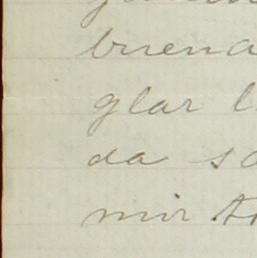 buena
glar l
da so
mir tr